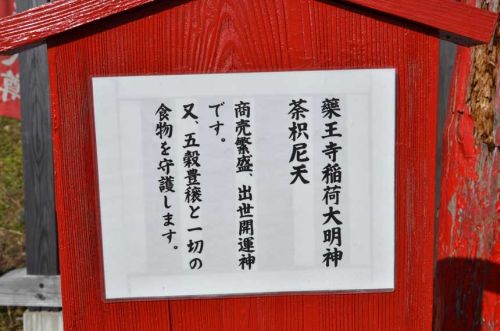 藥王寺稲荷大明神
荼枳尼天
商売繁盛、出世開運神
です。
又、五穀豊穣と一切の
食物を守護します。
尊